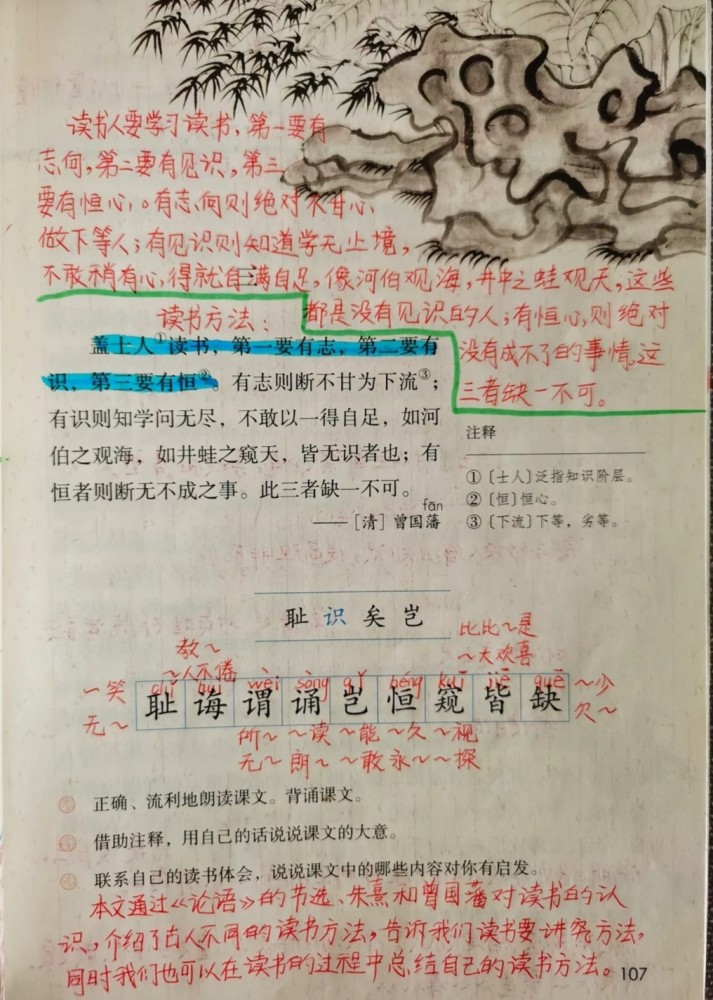 读书人要学习读书，第一要有
志向，第二要有见识，第三
要有恒心。有志向则绝对不甘心
做下等人；有见识则知道学无止境，
不敢稍有心得就自满自足，像河伯观海，井中之蛙观天，这些
都是没有见识的人；有恒心，则绝对
没有成不了的事情。这
三者缺一不可。
读书方法：
盖士人①读书，第一要有志，第二要有
识，第三要有恒②。有志则断不甘为下流③；
有识则知学问无尽，不敢以一得自足，如河
伯之观海，如井蛙之窥天，皆无识者也；有
恒者则断无不成之事。此三者缺一不可。
fān
——［清］曾国藩
注释
①〔士人〕泛指知识阶层。
②〔恒〕恒心。
③〔下流〕下等，劣等。
耻 识 矣 岂
教～
～人不倦
比比～是
～大欢喜
～笑
无～
chǐ huì wèi sòng qǐ héng kuī jiē quē
耻 诲 谓 诵 岂 恒 窥 皆 缺
～少
欠～
所～ ～读 ～能 ～久 ～视
无～ 朗～ ～敢 永～ ～探
正确、流利地朗读课文。背诵课文。
借助注释，用自己的话说说课文的大意。
联系自己的读书体会，说说课文中的哪些内容对你有启发。
本文通过《论语》的节选、朱熹和曾国藩对读书的认
识，介绍了古人不同的读书方法，告诉我们读书要讲究方法，
同时我们也可以在读书的过程中总结自己的读书方法。
107